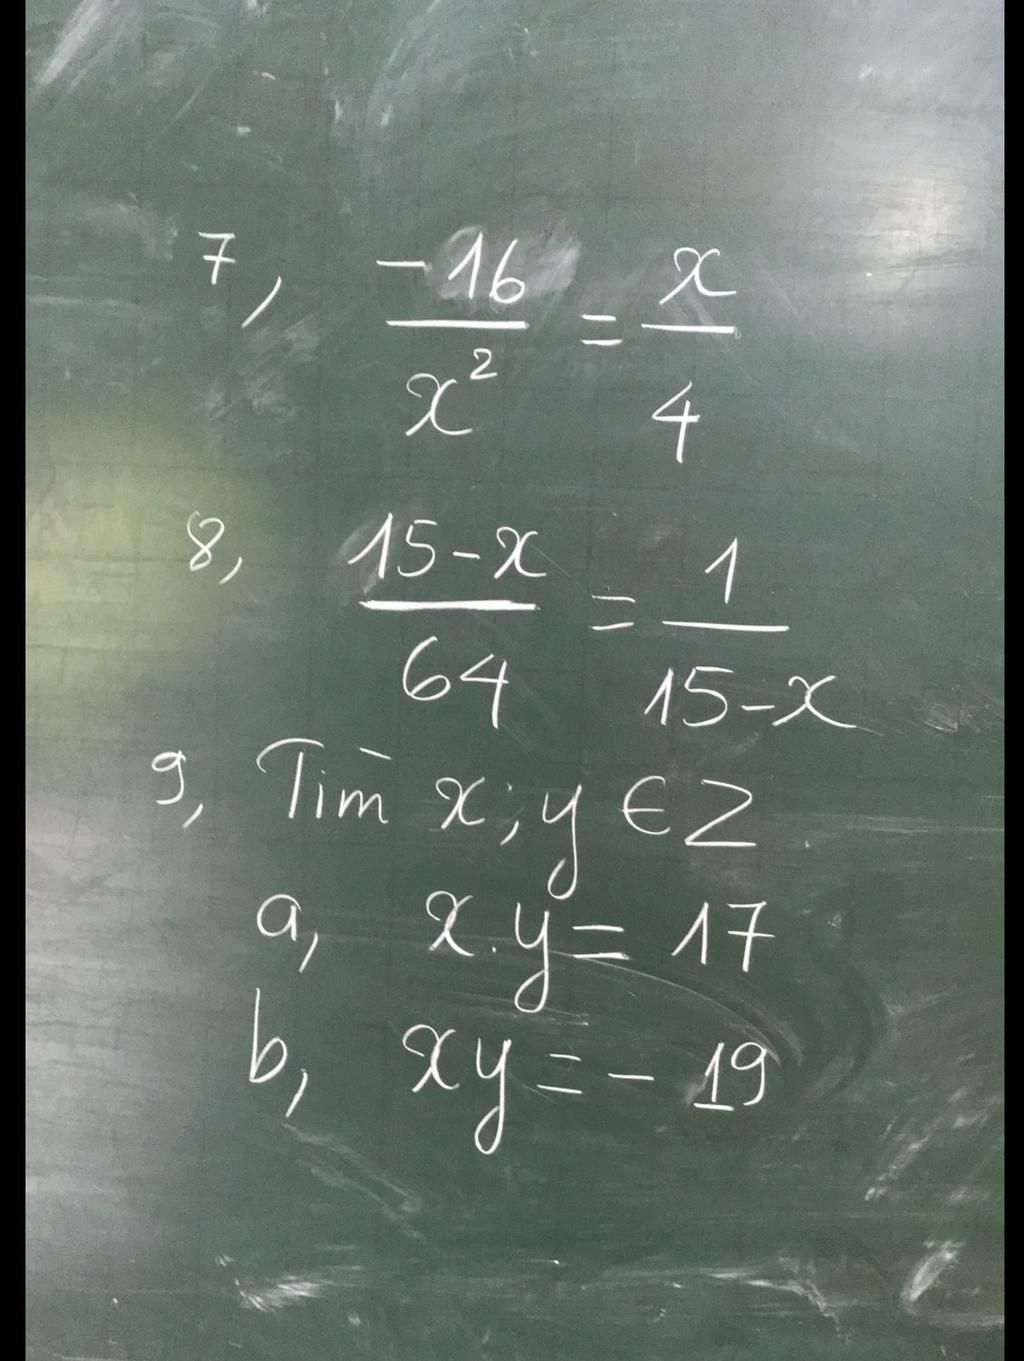 7, -16/x² = x/4
8, 15-x/64 = 1/15-x
9, Tìm x; y ∈ Z
a, x.y = 17
b, xy = - 19